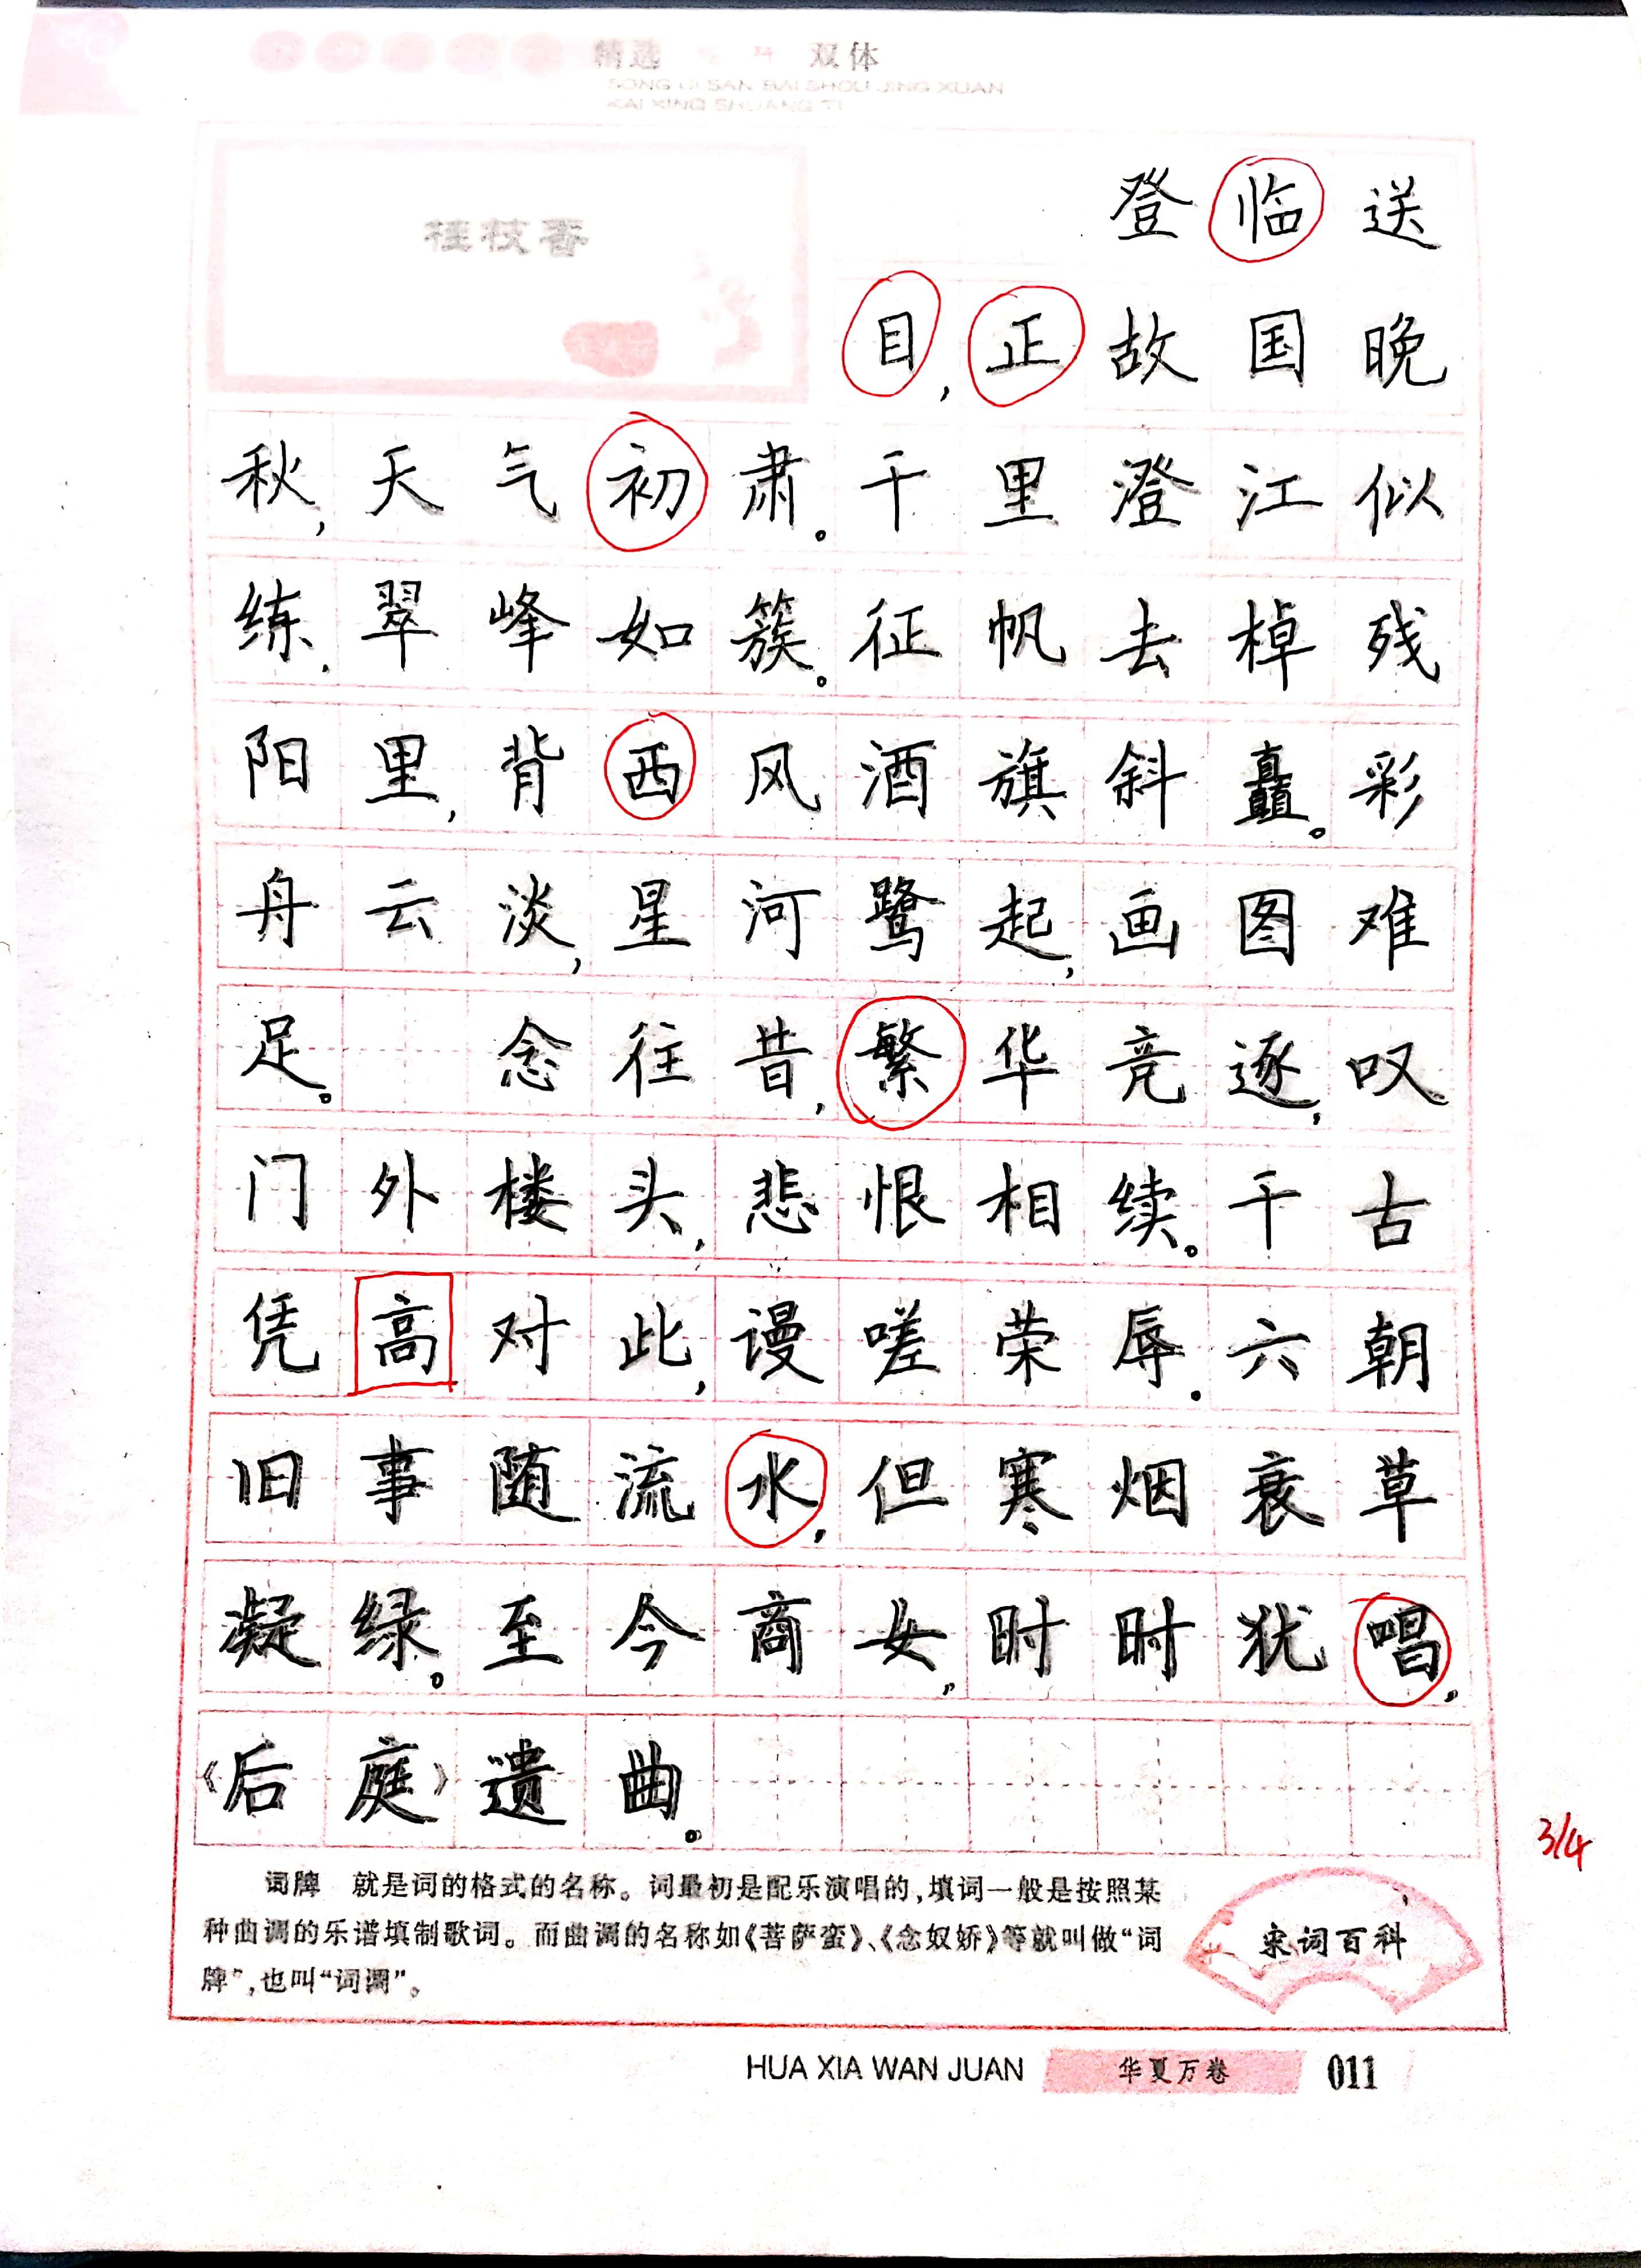 精选 双体
SONG CI SAN BAI SHOU JING XUAN
KAI XING SHUANG TI
桂枝香
登临送
目,正故国晚
秋,天气初肃。千里澄江似
练,翠峰如簇。征帆去棹残
阳里,背西风酒旗斜矗。彩
舟云淡,星河鹭起,画图难
足。 念往昔,繁华竞逐,叹
门外楼头,悲恨相续。千古
凭高对此,谩嗟荣辱。六朝
旧事随流水,但寒烟衰草
凝绿。至今商女,时时犹唱,
《后庭》遗曲。
3/4
词牌 就是词的格式的名称。词最初是配乐演唱的,填词一般是按照某
种曲调的乐谱填制歌词。而曲调的名称如《菩萨蛮》、《念奴娇》等就叫做“词
牌”,也叫“词调”。
宋词百科
HUA XIA WAN JUAN 华夏万卷 011